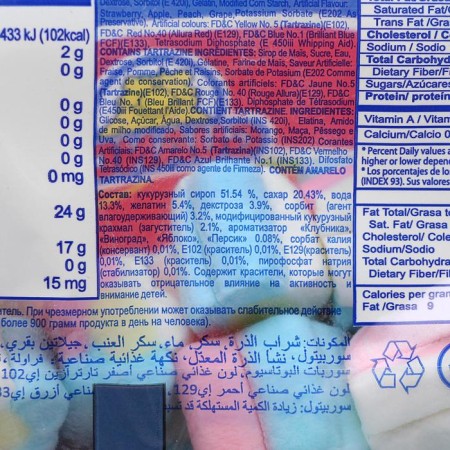 433 kJ (102kcal)
2 g
0 g
0 g
0 g
0 g
0 g
0 mg
24 g
17 g
0 g
15 mg
Dextrose, Sorbitol (E 420i), Gelatin, Modified Corn Starch, Artificial Flavour:
Strawberry, Apple, Peach, Grape, Potassium Sorbate (E202 As
Preservative), Artificial colours: FD&C Yellow No.5 (Tartrazine)(E102),
FD&C Red No.40 (Allura Red) (E129), FD&C Blue No.1 (Brilliant Blue
FCF)(E133), Tetrasodium Diphosphate (E 450iii Whipping Aid).
CONTAINS TARTRAZINE INGREDIENTS: Sirop de Maïs, Sucre, Eau,
Dextrose, Sorbitol (E 420i), Gélatine, Farine de Maïs, Saveur Artificielle:
Fraise, Pomme, Pêche et Raisin, Sorbate de Potassium (E202 Comme
agent de conservation), Colorants artificiels: FD&C Jaune No.5
(Tartrazine)(E102), FD&C Rouge No. 40 (Rouge Allura)(E129), FD&C
Bleu No. 1 (Bleu Brillant FCF)(E133), Diphosphate de Tétrasodium
(E450iii Fouettant l'Aide). CONTIENT TARTRAZINE. INGREDIENTES:
Glicose, Açúcar, Água, Dextrose, Sorbitol (INS 420i), Elatina, Amido
de milho modificado, Sabores artificiais: Morango, Maça, Pêssego e
Uva, Como conservante: Sorbato de Potassio (INS202) Corante
Artificiais: FD&C Amarelo No.5 (Tartrazina)(INS102), FD&C Vermelho
No.40 (INS129), FD&C Azul Brilhante No.1 (INS133). Difosfato
Tetrasódico (INS 450iii como agente de Firmeza). CONTÉM AMARELO
TARTRAZINA.
Состав: кукурузный сироп 51.54 %, сахар 20.43%, вода
13.3%, желатин 5.4%, декстроза 3.9%, сорбит (агент
влагоудерживающий) 3.2%, модифицированный кукурузный
крахмал (загуститель) 2.1%, ароматизатор «Клубника»,
«Виноград», «Яблоко», «Персик» 0.08%, сорбат калия
(консервант) 0,01%, E102 (краситель) 0,01%, E129(краситель)
0,01%, E133 (краситель) 0,01%, пирофосфат натрия
(стабилизатор) 0,01%. Содержит красители, которые могут
оказывать отрицательное влияние на активность и
внимание детей.
тель. При чрезмерном употреблении может оказывать слабительное действие
более 900 грамм продукта в день на человека).
المكونات: شراب الذرة, سكر, ماء, سكر العنب, جيلاتين بقري,
سوربيتول, نشأ الذرة المعدّل, نكهة غذائية صناعية, فراولة,
سوربات البوتاسيوم, لون غذائي صناعي أصفر تارترازين إي102,
لون غذائي صناعي أحمر إي129, أزرق إي133
سوربيتول: زيادة الكمية المستهلكة قد
Saturated Fat/
Trans Fat /Gra
Cholesterol / C
Sodium / Sodio
Total Carbohyd
Dietary Fiber/F
Sugars/Azúcares
Protein/ proteín
Vitamin A / Vitam
Calcium/Calcio 0
* Percent Daily values a
higher or lower depend
* Los porcentajes de lo
(INDEX 93). Sus valores
Fat Total/Grasa t
Sat. Fat/ Grasa
Cholesterol/ Cole
Sodium/Sodio
Total Carbohydra
Dietary Fiber/Fi
Calories per gram
Fat /Grasa 9